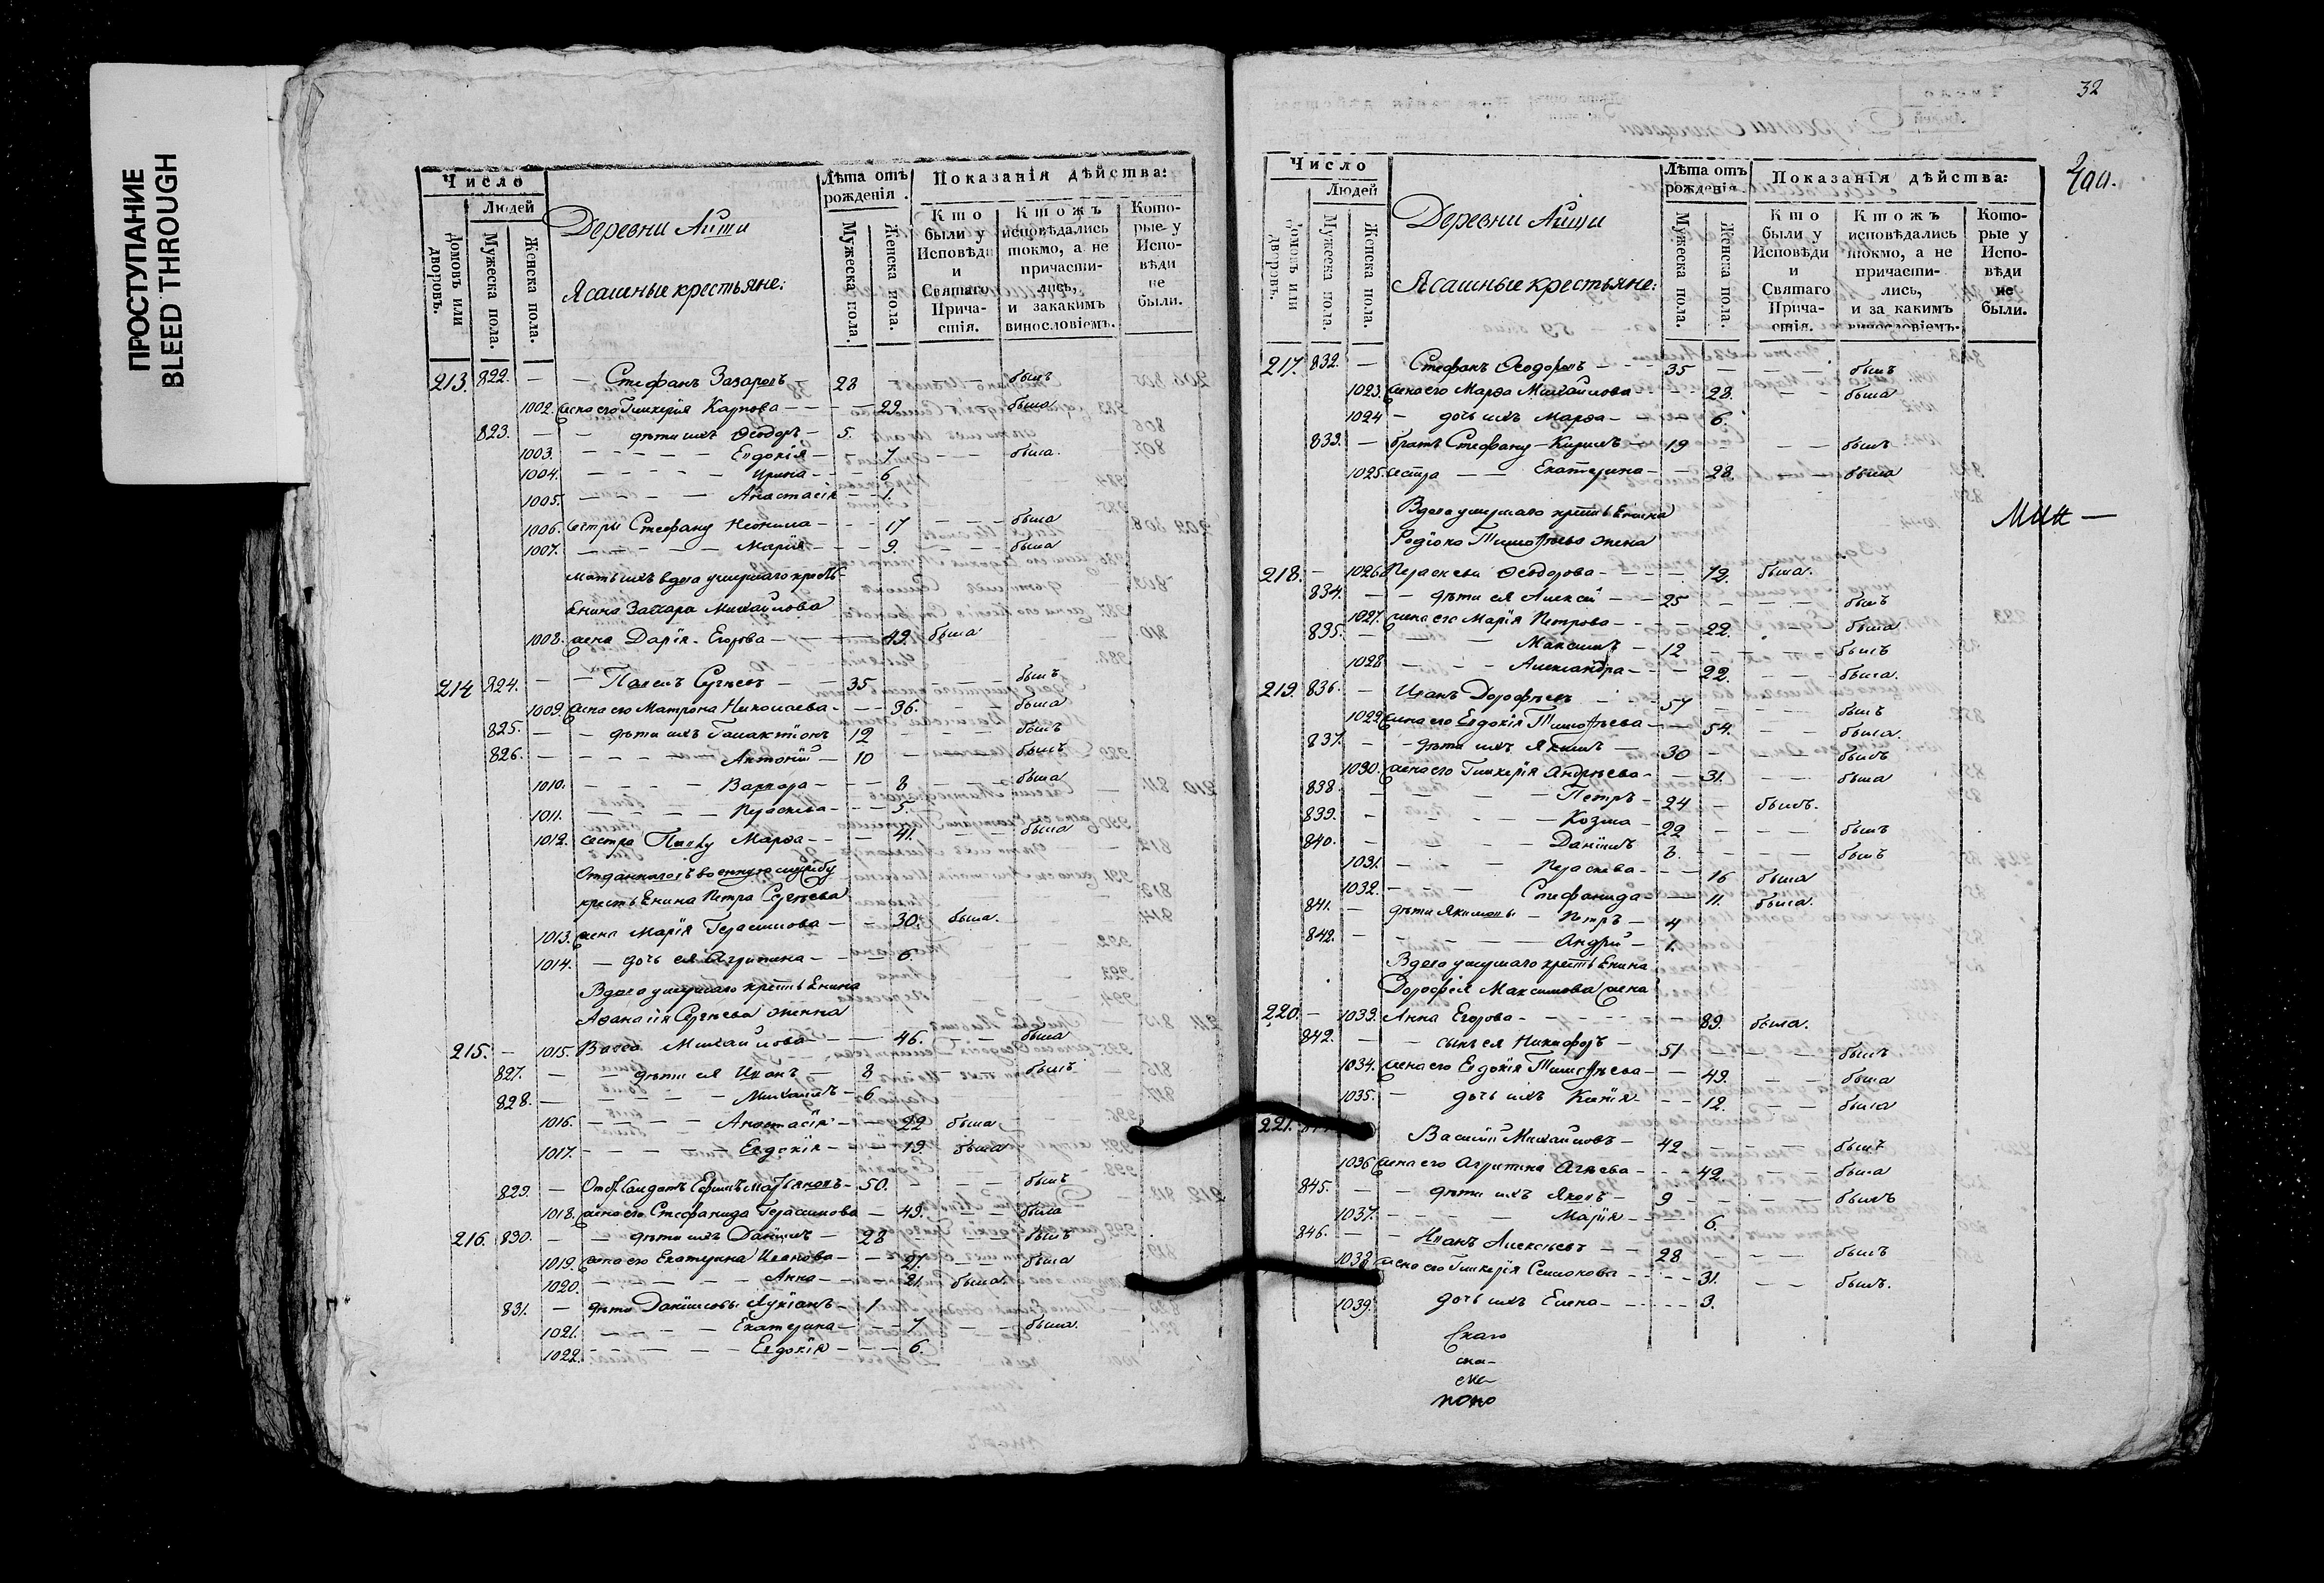 ПРОСТУПАНИЕ
BLEED THROUGH
Число
Людей
Домовъ или дворовъ.
Мужеска пола.
Женска пола.
Деревни Аиши
Ясашные крестьяне:
Лѣта отъ рожденія.
Мужеска пола.
Женска пола.
Показанія дѣйства:
Кто были у Исповѣди и Святаго Причастія.
Ктожъ исповѣдались токмо, а не причастились, и закакимъ винословіемъ.
Которые у Исповѣди не были.
213. 822. — — Стефанъ Захаровъ 28 — — — былъ
1002. жена его Гликерія Карпова — — — 29. — — была
823. — — дѣти ихъ Ѳеодоръ — 5.
1003. — — — — — Евдокія — — 7 — — — была.
1004. — — — — — Ирина — — — 6
1005. — — — — Анастасія — — 1.
1006. сестры Стефану Неонила — — — 17 — — — была
1007. — — — — — Марія — — — 9. — — — была
мать ихъ вдова умершаго кресть-
янина Захара Михайлова
1008. жена Дарія Егорова — — — 49. была
214 824. — — Павелъ Сергѣевъ — — 35 — — — былъ
1009. жена его Матрона Николаева — — — 36. — — была
825. — — дѣти ихъ Галактіонъ 12 — — — былъ
826. — — — — — Антоній — 10 — — — былъ
1010. — — — — Варвара — — — 8 — — — была
1011. — — — — — Параскева — — — 5.
1012. сестра Павлу Марѳа — — — 41. — — была
Отданнаго въ военную службу
крестьянина Петра Сергѣева
1013. жена Марія Герасимова — — — 30. была.
1014. — дочь ея Агрипина — — — 6.
Вдова умершаго крестьянина
Аѳанасія Сергѣева женна
215. — 1015. Васса Михайлова — — — 46. — — была
827. — — дѣти ея Иванъ — 8 — — — былъ
828. — — — — — Михаилъ — 6
1016. — — — — — Анастасія — — 22 была
1017. — — — — Евдокія — — — 19. была
829. — Отст. Солдатъ Ефимъ Мартьяновъ — 50. — — — былъ
1018. жена его Стефанида Герасимова — 49. — — была
216. 830. — — дѣти ихъ Даніилъ — 28 — — — былъ
1019. жена его Екатерина Иванова — — 27. — — была
1020. — — — — — Анна — — — 21. была.
831. — дѣти Даніиловы Лукіанъ — 1
1021. — — — — Екатерина — — — 7 — — была.
1022. — — — — — Евдокія — — — — 6.
32
Число
Людей
Домовъ или дворовъ.
Мужеска пола.
Женска пола.
Деревни Аиши
Ясашные крестьяне:
Лѣта отъ рожденія.
Мужеска пола.
Женска пола.
Показанія дѣйства:
Кто были у Исповѣди и Святаго Причастія.
Ктожъ исповѣдались токмо, а не причастились, и за какимъ винословіемъ.
Которые у Исповѣди не были.
217. 832. — Стефанъ Ѳеодоровъ — — — 35 — — — былъ
1023. жена его Марѳа Михайлова — — — 28. — — была
1024 — дочь ихъ Марѳа — — — 6.
833. — братъ Стефану — Кирилъ — 19 — — — былъ
1025. сестра — — Екатерина — — 28. — — была
Вдова умершаго крестьянина
Родіона Тимофѣева жена
218. — 1026. Параскева Ѳеодорова — — — — 72. была.
834. — — дѣти ея Алексѣй — — 25 — — — былъ
1027. жена его Марія Петрова — — — — 22. — — была
835. — — Максимъ — 12 — — — былъ
1028 — — — Александра — — — 22. — — была.
219. 836. — Иванъ Дорофѣевъ — 57 — — — былъ
1029. жена его Евдокія Тимофѣева — — 54. — — была.
837. — — дѣти ихъ Якимъ — 30 — — — былъ
1030. жена его Гликерія Андреева — — 31. — — была
838. — — — — Петръ — 24 — былъ.
839. — — — — — Козма — 22 — — — былъ
840. — — — — Даніилъ 8. — — — былъ
1031. — — — Параскева — — — 16 была
1032. — — — Стефанида — — 11. была.
841. — дѣти Якимовы — Петръ — 4
842. — — — — Андрей — 1.
Вдова умершаго крестьянина
Дорофѣя Максимова жена
220. — 1033. Анна Егорова — — — — — 89. была.
842. — — сынъ ея Никифоръ — 51 — — — былъ
1034. жена его Евдокія Тимофѣева — — 49. — — была
1035. — дочь ихъ Ксенія — — 12. — — была
221. Василій Михайловъ — 42 — — — былъ
1036 жена его Агрипина — — — 42. — — была
845. — — дѣти ихъ Яковъ — 9 — — — былъ
1037. — — — — — Марія — — — 6.
846. — — Иванъ Алексѣевъ — — 28 — — — былъ
1038 жена его Гликерія Семионова — — — — 31. — — былъ.
1039. дочь ихъ Елена — — — — 3.